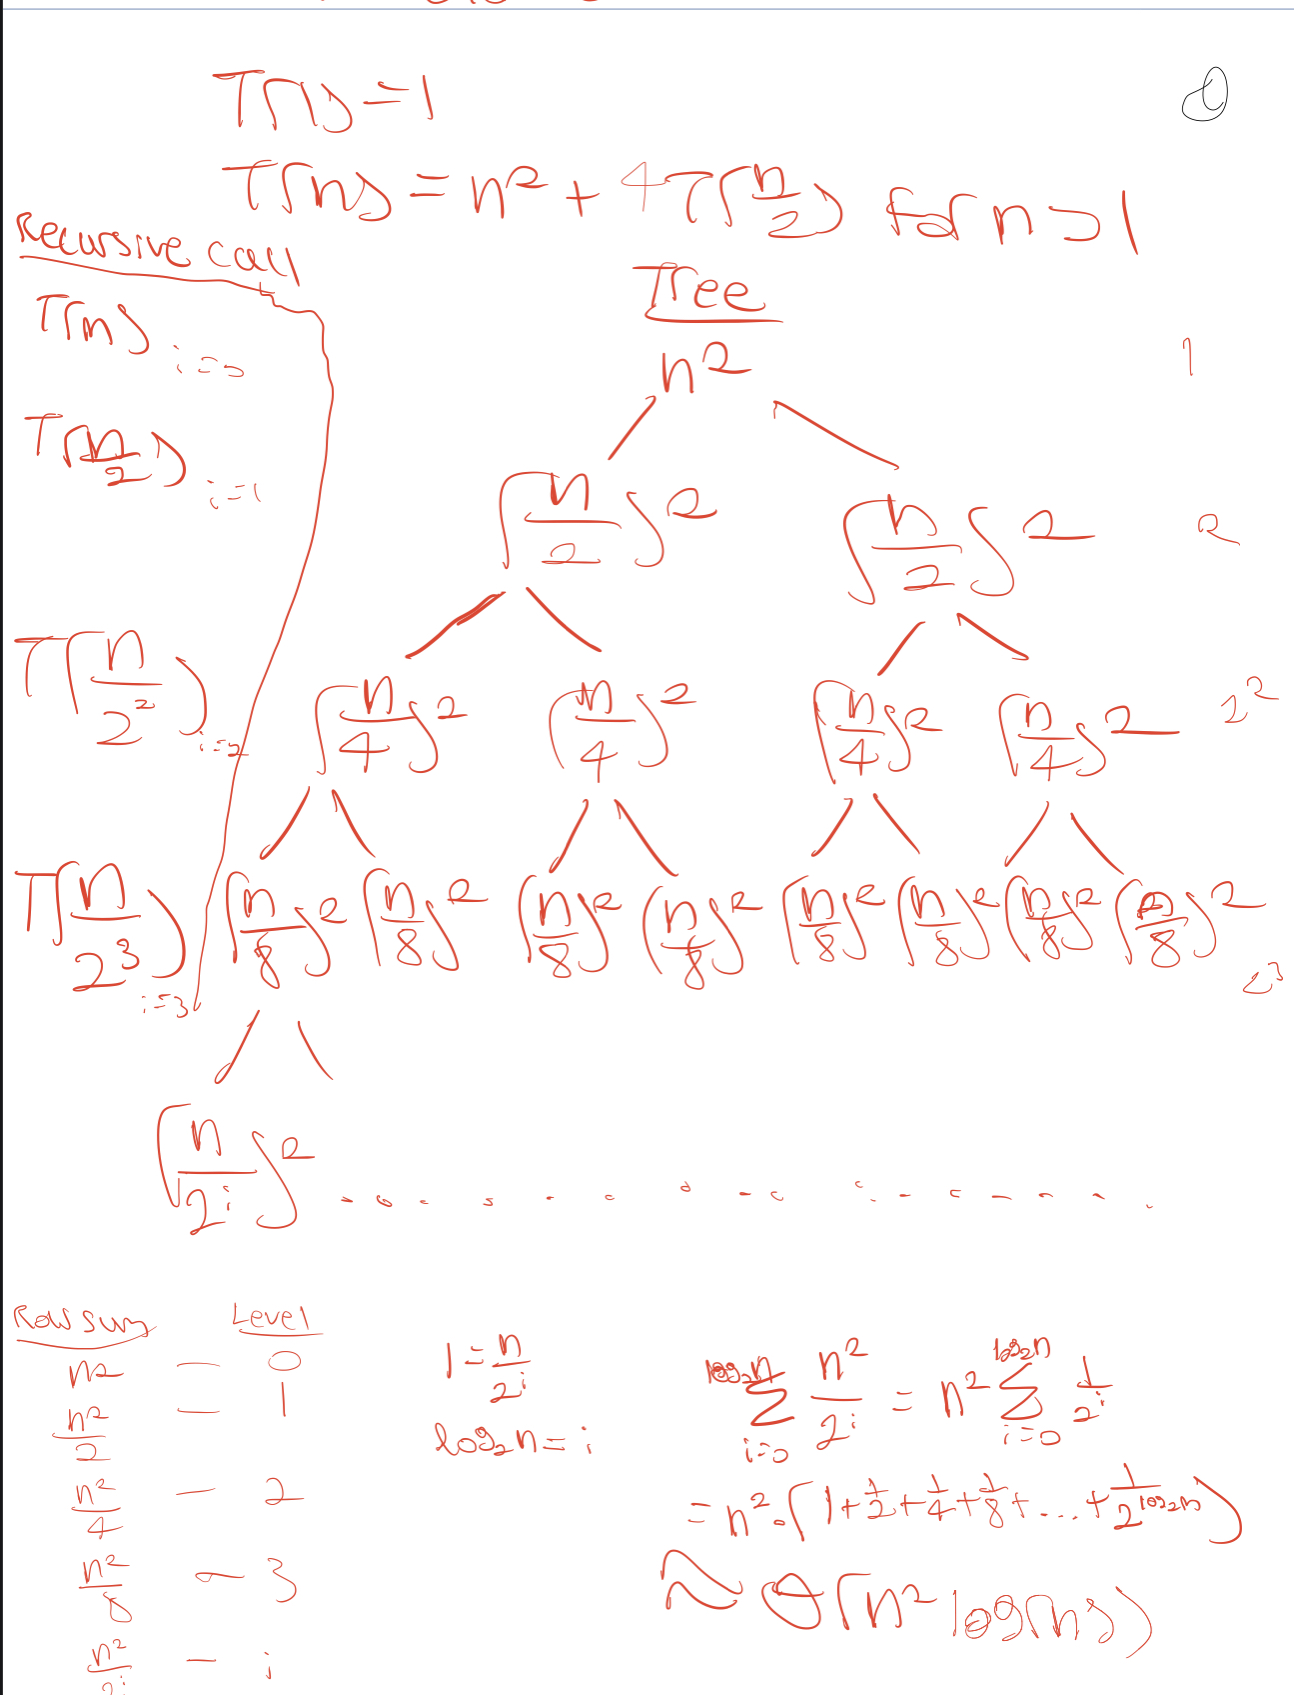 T(1) = 1
T(n) = n² + 4T(n/2) for n > 1
Recursive call
Tree
T(n) i=0
n²
1
T(n/2) i=1
(n/2)² (n/2)² 2
T(n/2²) i=2
(n/4)² (n/4)² (n/4)² (n/4)² 2²
T(n/2³) i=3
(n/8)² (n/8)² (n/8)² (n/8)² (n/8)² (n/8)² (n/8)² (n/8)² 2³
(n/2^i)² . . . . . . . . . . . . . . . .
Row sum Level
n² – 0
n²/2 – 1
n²/4 – 2
n²/8 – 3
n²/2^i – i
1 = n/2^i
log₂n = i
∑_{i=0}^{log₂n} n²/2^i = n² ∑_{i=0}^{log₂n} 1/2^i
= n² · (1 + 1/2 + 1/4 + 1/8 + ... + 1/2^{log₂n})
≈ Θ(n² log(n))